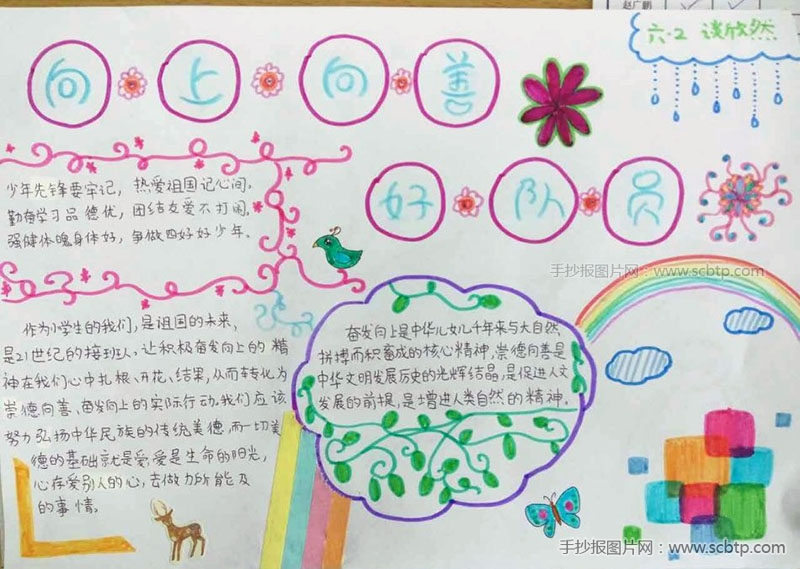 赵广鹏
六·2 谈欣然
向上向善
好队员
少年先锋要牢记，热爱祖国记心间。
勤奋学习品德优，团结友爱不打闹。
强健体魄身体好，争做四好好少年。
手抄报图片网：www.scbtp.com
作为小学生的我们，是祖国的未来，
是21世纪的接班人。让积极奋发向上的精
神在我们心中扎根、开花、结果，从而转化为
崇德向善、奋发向上的实际行动。我们应该
努力弘扬中华民族的传统美德，而一切美
德的基础就是爱，爱是生命的阳光，
心存爱别人的心，去做力所能及
的事情。
奋发向上是中华儿女几千年来与大自然
拼搏而积蓄成的核心精神，崇德向善是
中华文明发展历史的光辉结晶，是促进人文
发展的前提，是增进人类自然的精神。
手抄报图片网：www.scbtp.com